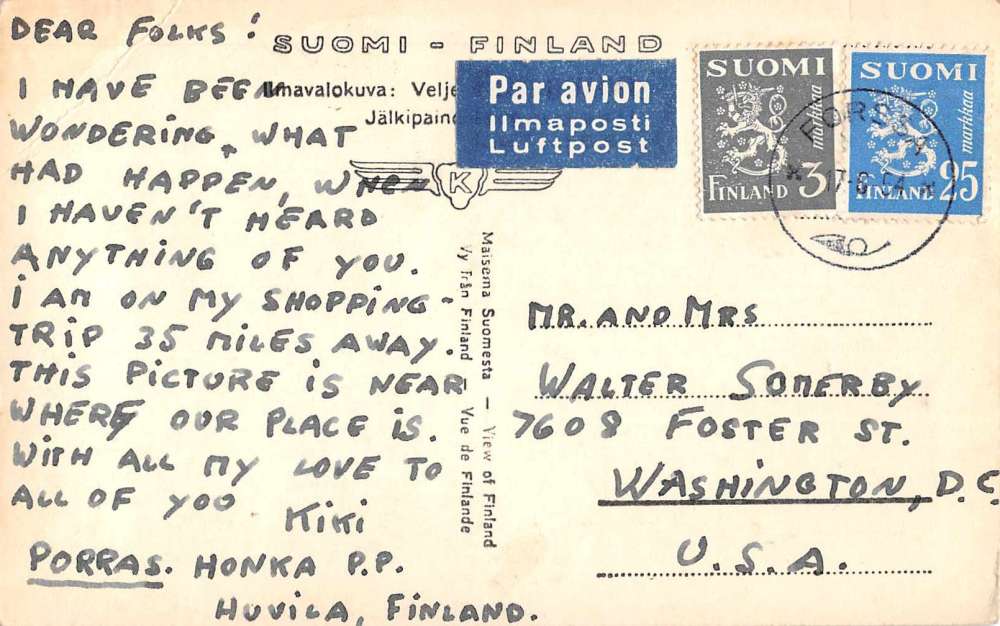 DEAR FOLKS!
I HAVE BEEN
WONDERING, WHAT
HAD HAPPEN, WHEN
I HAVEN'T HEARD
ANYTHING OF YOU.
I AM ON MY SHOPPING-
TRIP 35 MILES AWAY.
THIS PICTURE IS NEAR
WHERE OUR PLACE IS.
WITH ALL MY LOVE TO
ALL OF YOU
KIKI
PORRAS. HONKA P.P.
HUVILA, FINLAND.
SUOMI - FINLAND
Ilmavalokuva: Velje
Jälkipaino
K
Par avion
Ilmaposti
Luftpost
SUOMI
markkaa
FINLAND 3
SUOMI
markkaa
FINLAND 25
Maisema Suomesta - View of Finland
Vy från Finland - Vue de Finlande
MR. AND MRS
WALTER SOMERBY
7608 FOSTER ST.
WASHINGTON, D.C
U.S.A.